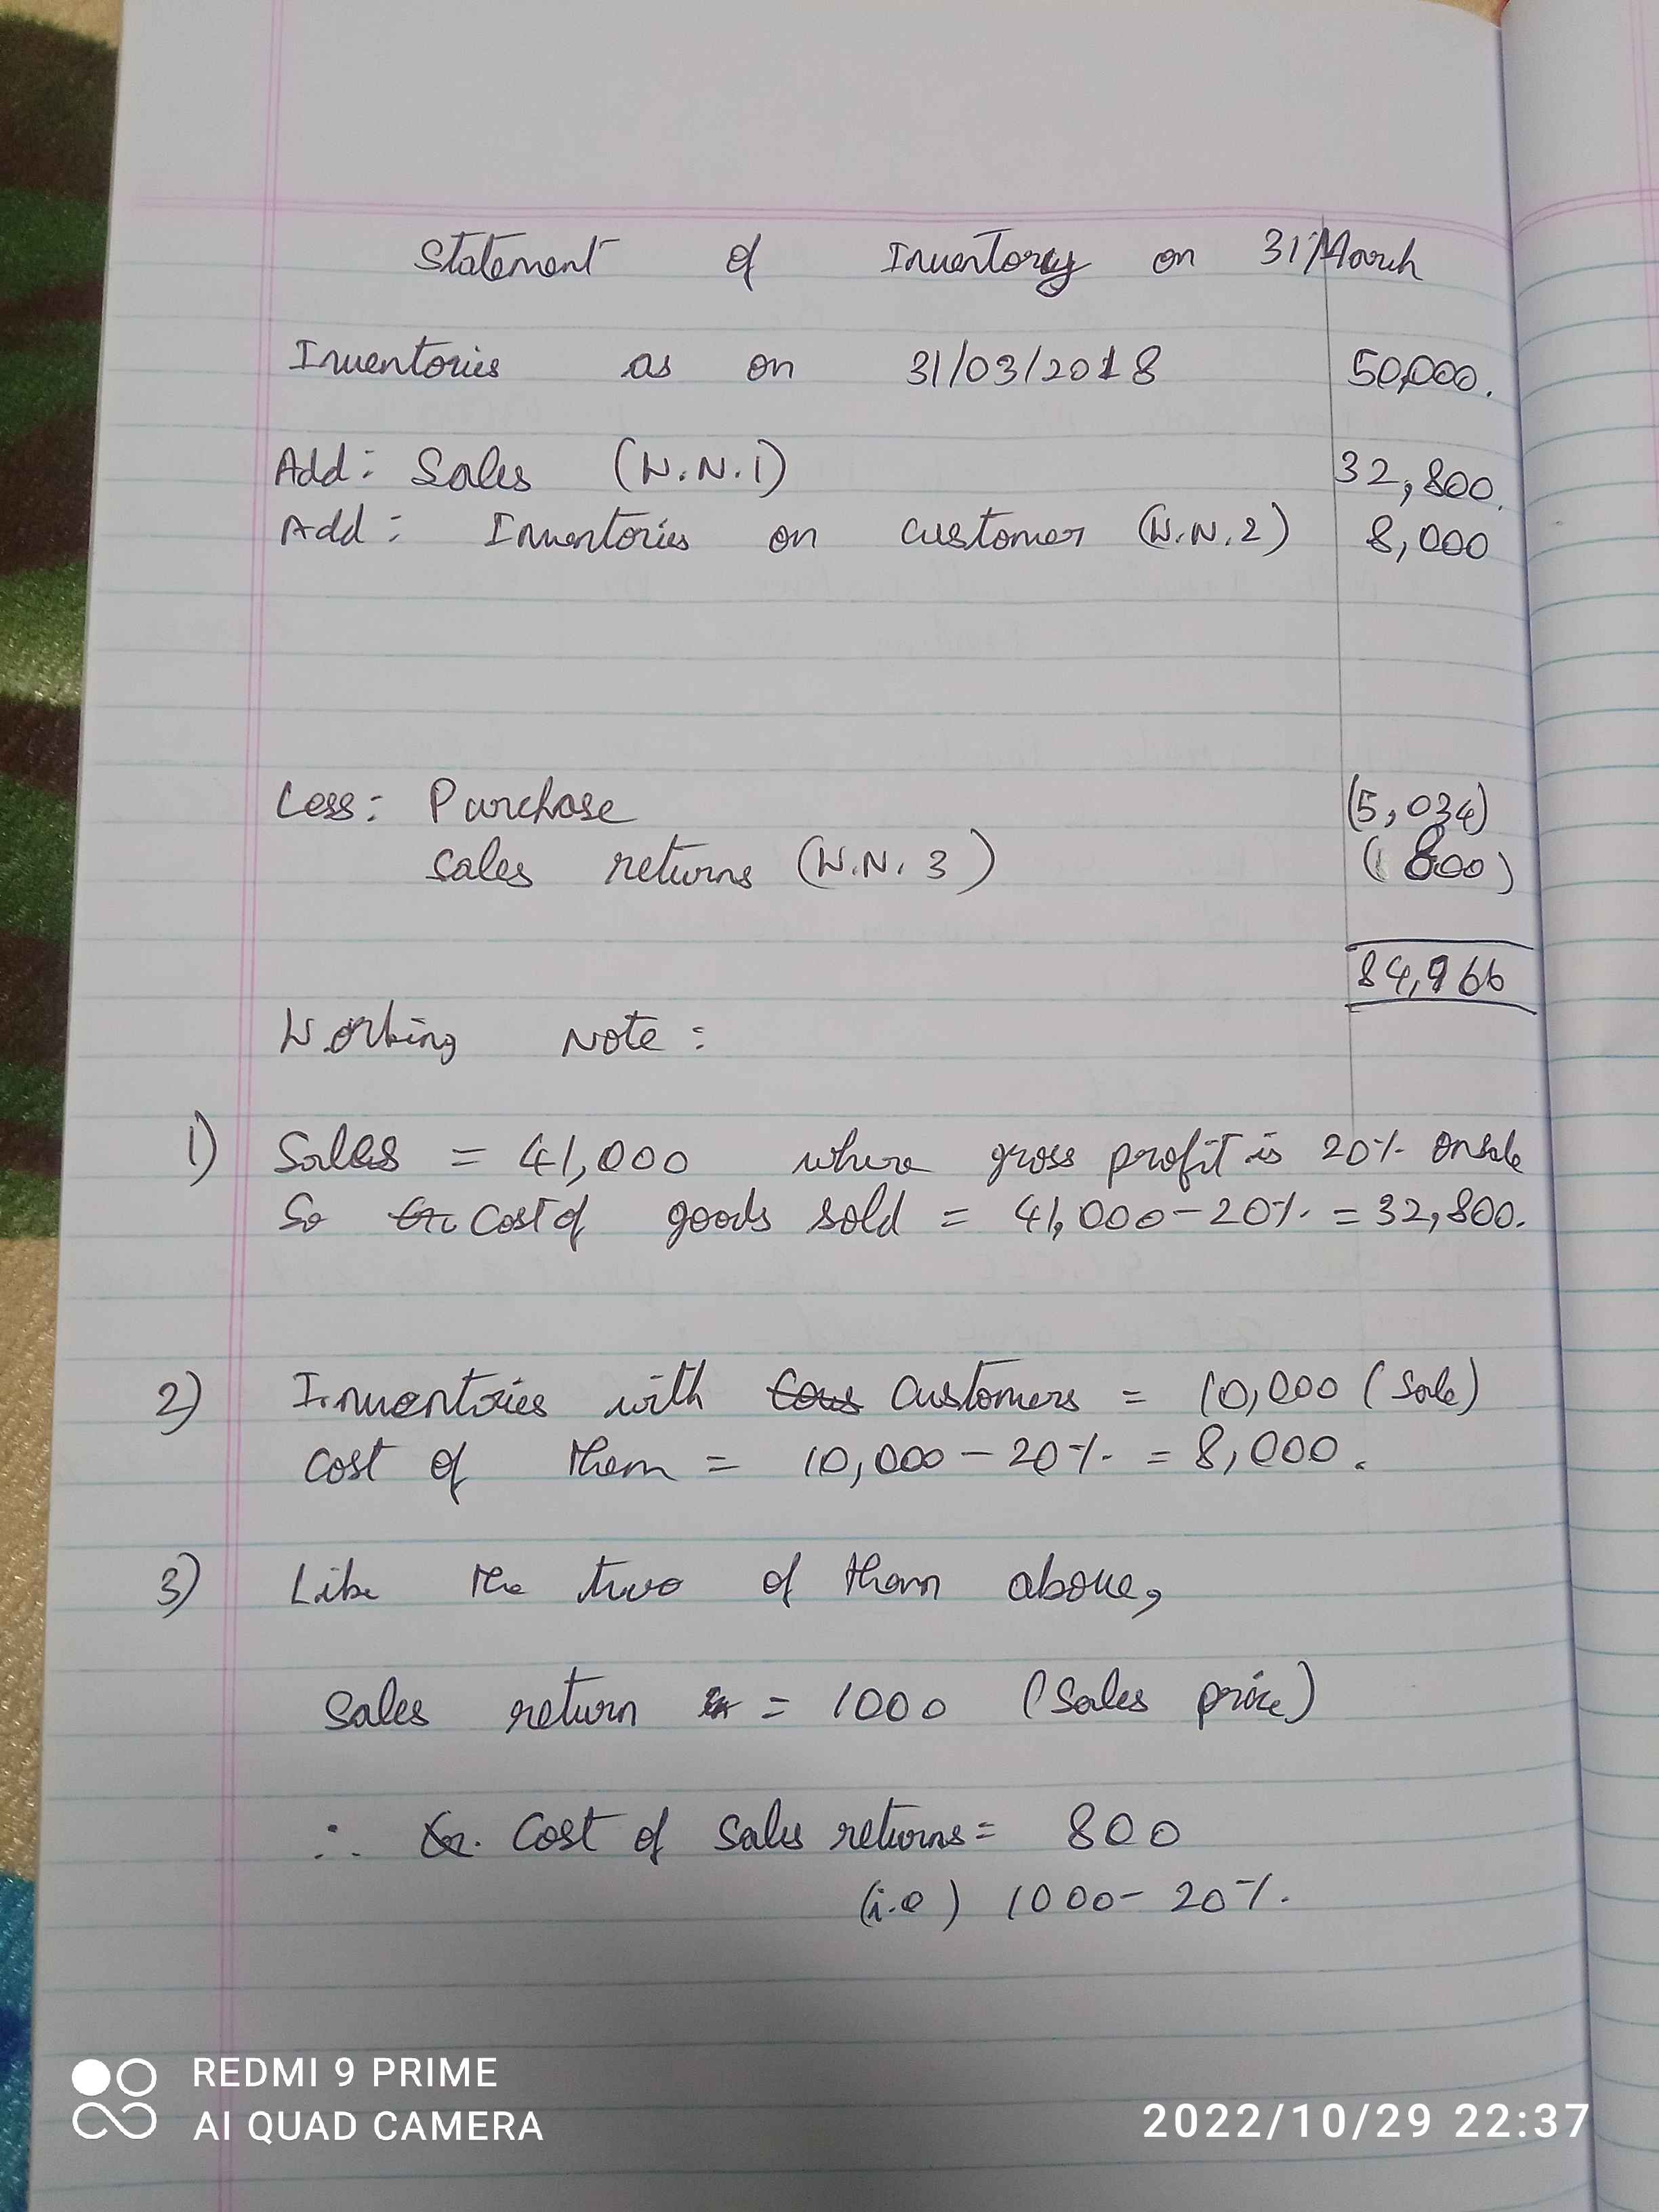 Statement of Inventory on 31 March
Inventories as on 31/03/2018 50,000.
Add: Sales (W.N.1) 32,800.
Add: Inventories on customer (W.N.2) 8,000
Less: Purchase (5,034)
Sales returns (W.N.3) (800)
84,966
Working Note:
1) Sales = 41,000 where gross profit is 20% on sale
So cost of goods sold = 41,000 - 20% = 32,800.
2) Inventories with customers = 10,000 (Sale)
cost of them = 10,000 - 20% = 8,000.
3) Like the two of them above,
Sales return = 1000 (Sales price)
∴ Cost of Sales returns = 800
(i.e) 1000 - 20%.
REDMI 9 PRIME
AI QUAD CAMERA
2022/10/29 22:37